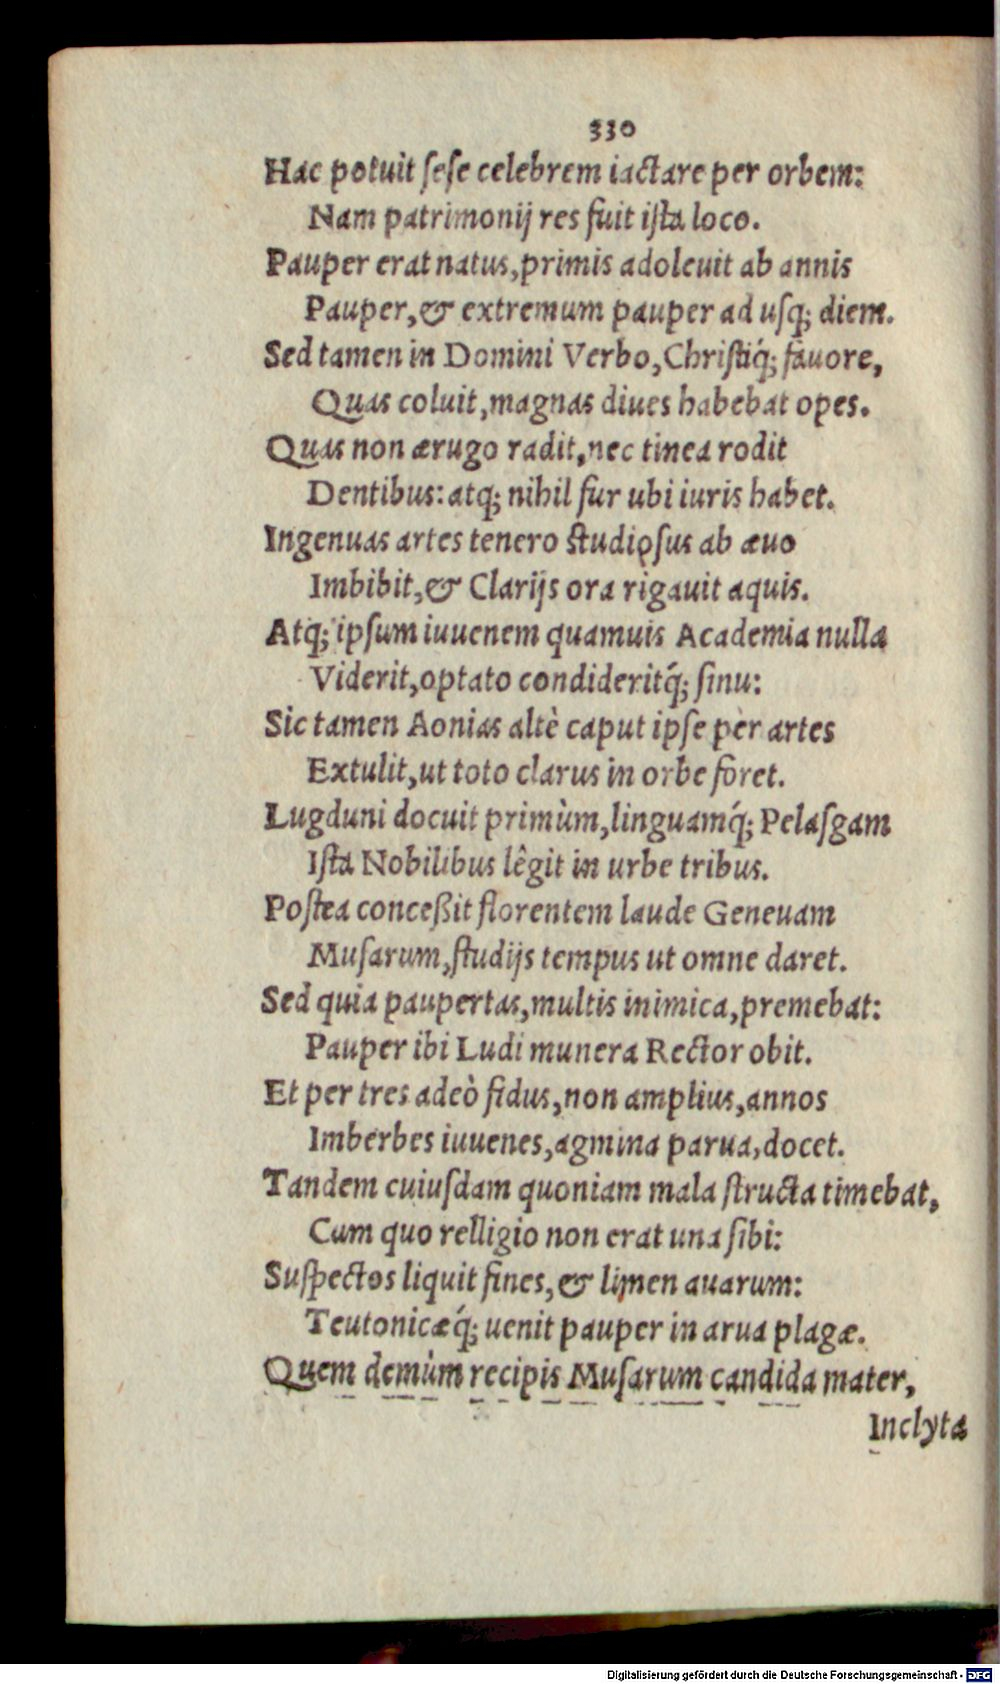 330
Hac potuit sese celebrem iactare per orbem:
Nam patrimonij res fuit ista loco.
Pauper erat natus, primis adoleuit ab annis
Pauper, & extremum pauper ad usq; diem.
Sed tamen in Domini Verbo, Christiq́; fauore,
Quas coluit, magnas diues habebat opes.
Quas non ærugo radit, nec tinea rodit
Dentibus: atq; nihil fur ubi iuris habet.
Ingenuas artes tenero studiosus ab æuo
Imbibit, & Clarijs ora rigauit aquis.
Atq; ipsum iuuenem quamuis Academia nulla
Viderit, optato condideritq́; sinu:
Sic tamen Aonias altè caput ipse per artes
Extulit, ut toto clarus in orbe foret.
Lugduni docuit primùm, linguamq́; Pelasgam
Ista Nobilibus lêgit in urbe tribus.
Postea conceßit florentem laude Geneuam
Musarum, studijs tempus ut omne daret.
Sed quia paupertas, multis inimica, premebat:
Pauper ibi Ludi munera Rector obit.
Et per tres adeò fidus, non amplius, annos
Imberbes iuuenes, agmina parua, docet.
Tandem cuiusdam quoniam mala structa timebat,
Cum quo relligio non erat una sibi:
Suspectos liquit fines, & limen auarum:
Teutonicæq́; uenit pauper in arua plagæ.
Quem demùm recipis Musarum candida mater,
Inclyta
Digitalisierung gefördert durch die Deutsche Forschungsgemeinschaft - DFG